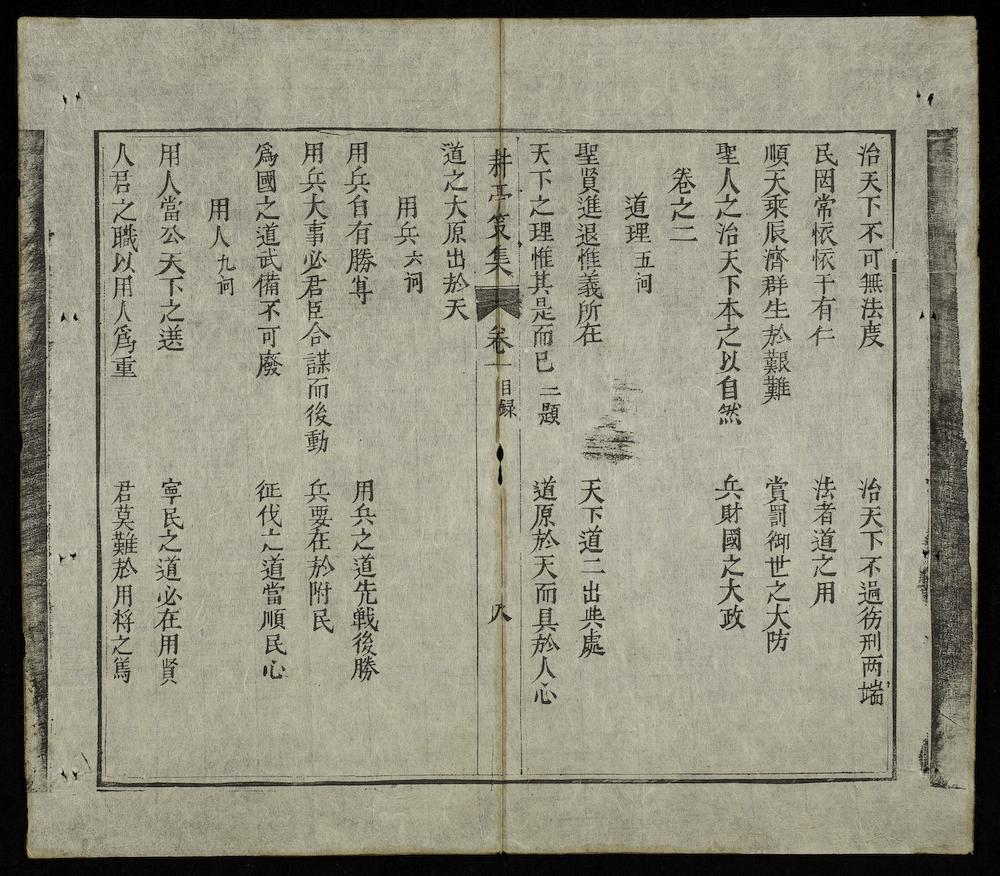 治天下不可無法度　治天下不過彷刑两端
民罔常怀怀于有仁　法者道之用
順天乘辰濟群生於艱難　賞罰御世之大防
聖人之治天下本之以自然　兵財國之大政
卷之二
道理五问
聖賢進退惟義所在　天下道二出與處
天下之理惟其是而已 二題　道原於天而具於人心
耕亭策集　卷一 目録　八
道之大原出於天
用兵六问
用兵自有勝筭　用兵之道先戰後勝
用兵大事必君臣合謀而後動　兵要在於附民
為國之道武備不可廢　征伐之道當順民心
用人九问
用人當公天下之選　寧民之道必在用賢
人君之職以用人為重　君莫難於用将之篤